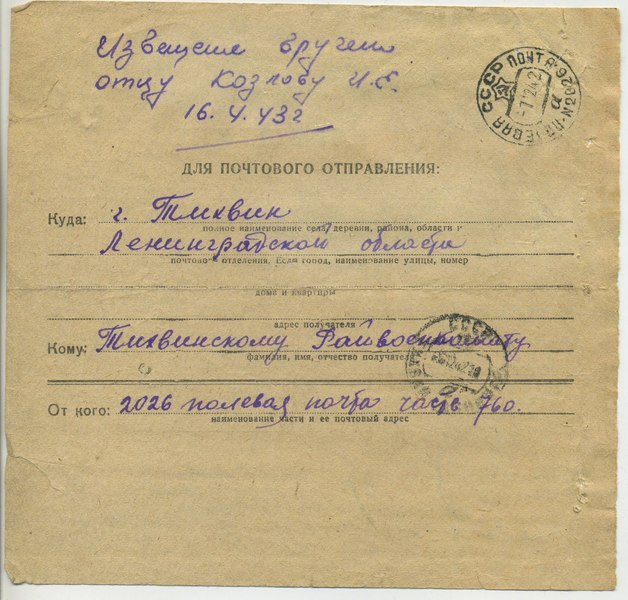 Извещение вручено
отцу Козлову И.Е.
16.4.43г
СССР ПОЧТА
ПОЛЕВАЯ
-71242
ДЛЯ ПОЧТОВОГО ОТПРАВЛЕНИЯ:
Куда: г. Тихвин
полное наименование села, деревни, района, области и
Ленинградской области
почтово отделения. Если город, наименование улицы, номер
дома и квартиры
адрес получателя
Кому: Тихвинскому Райвоенкомату
фамилия, имя, отчество получател
СССР
От кого: 2026 полевая почта часть 760.
наименование части и ее почтовый адрес